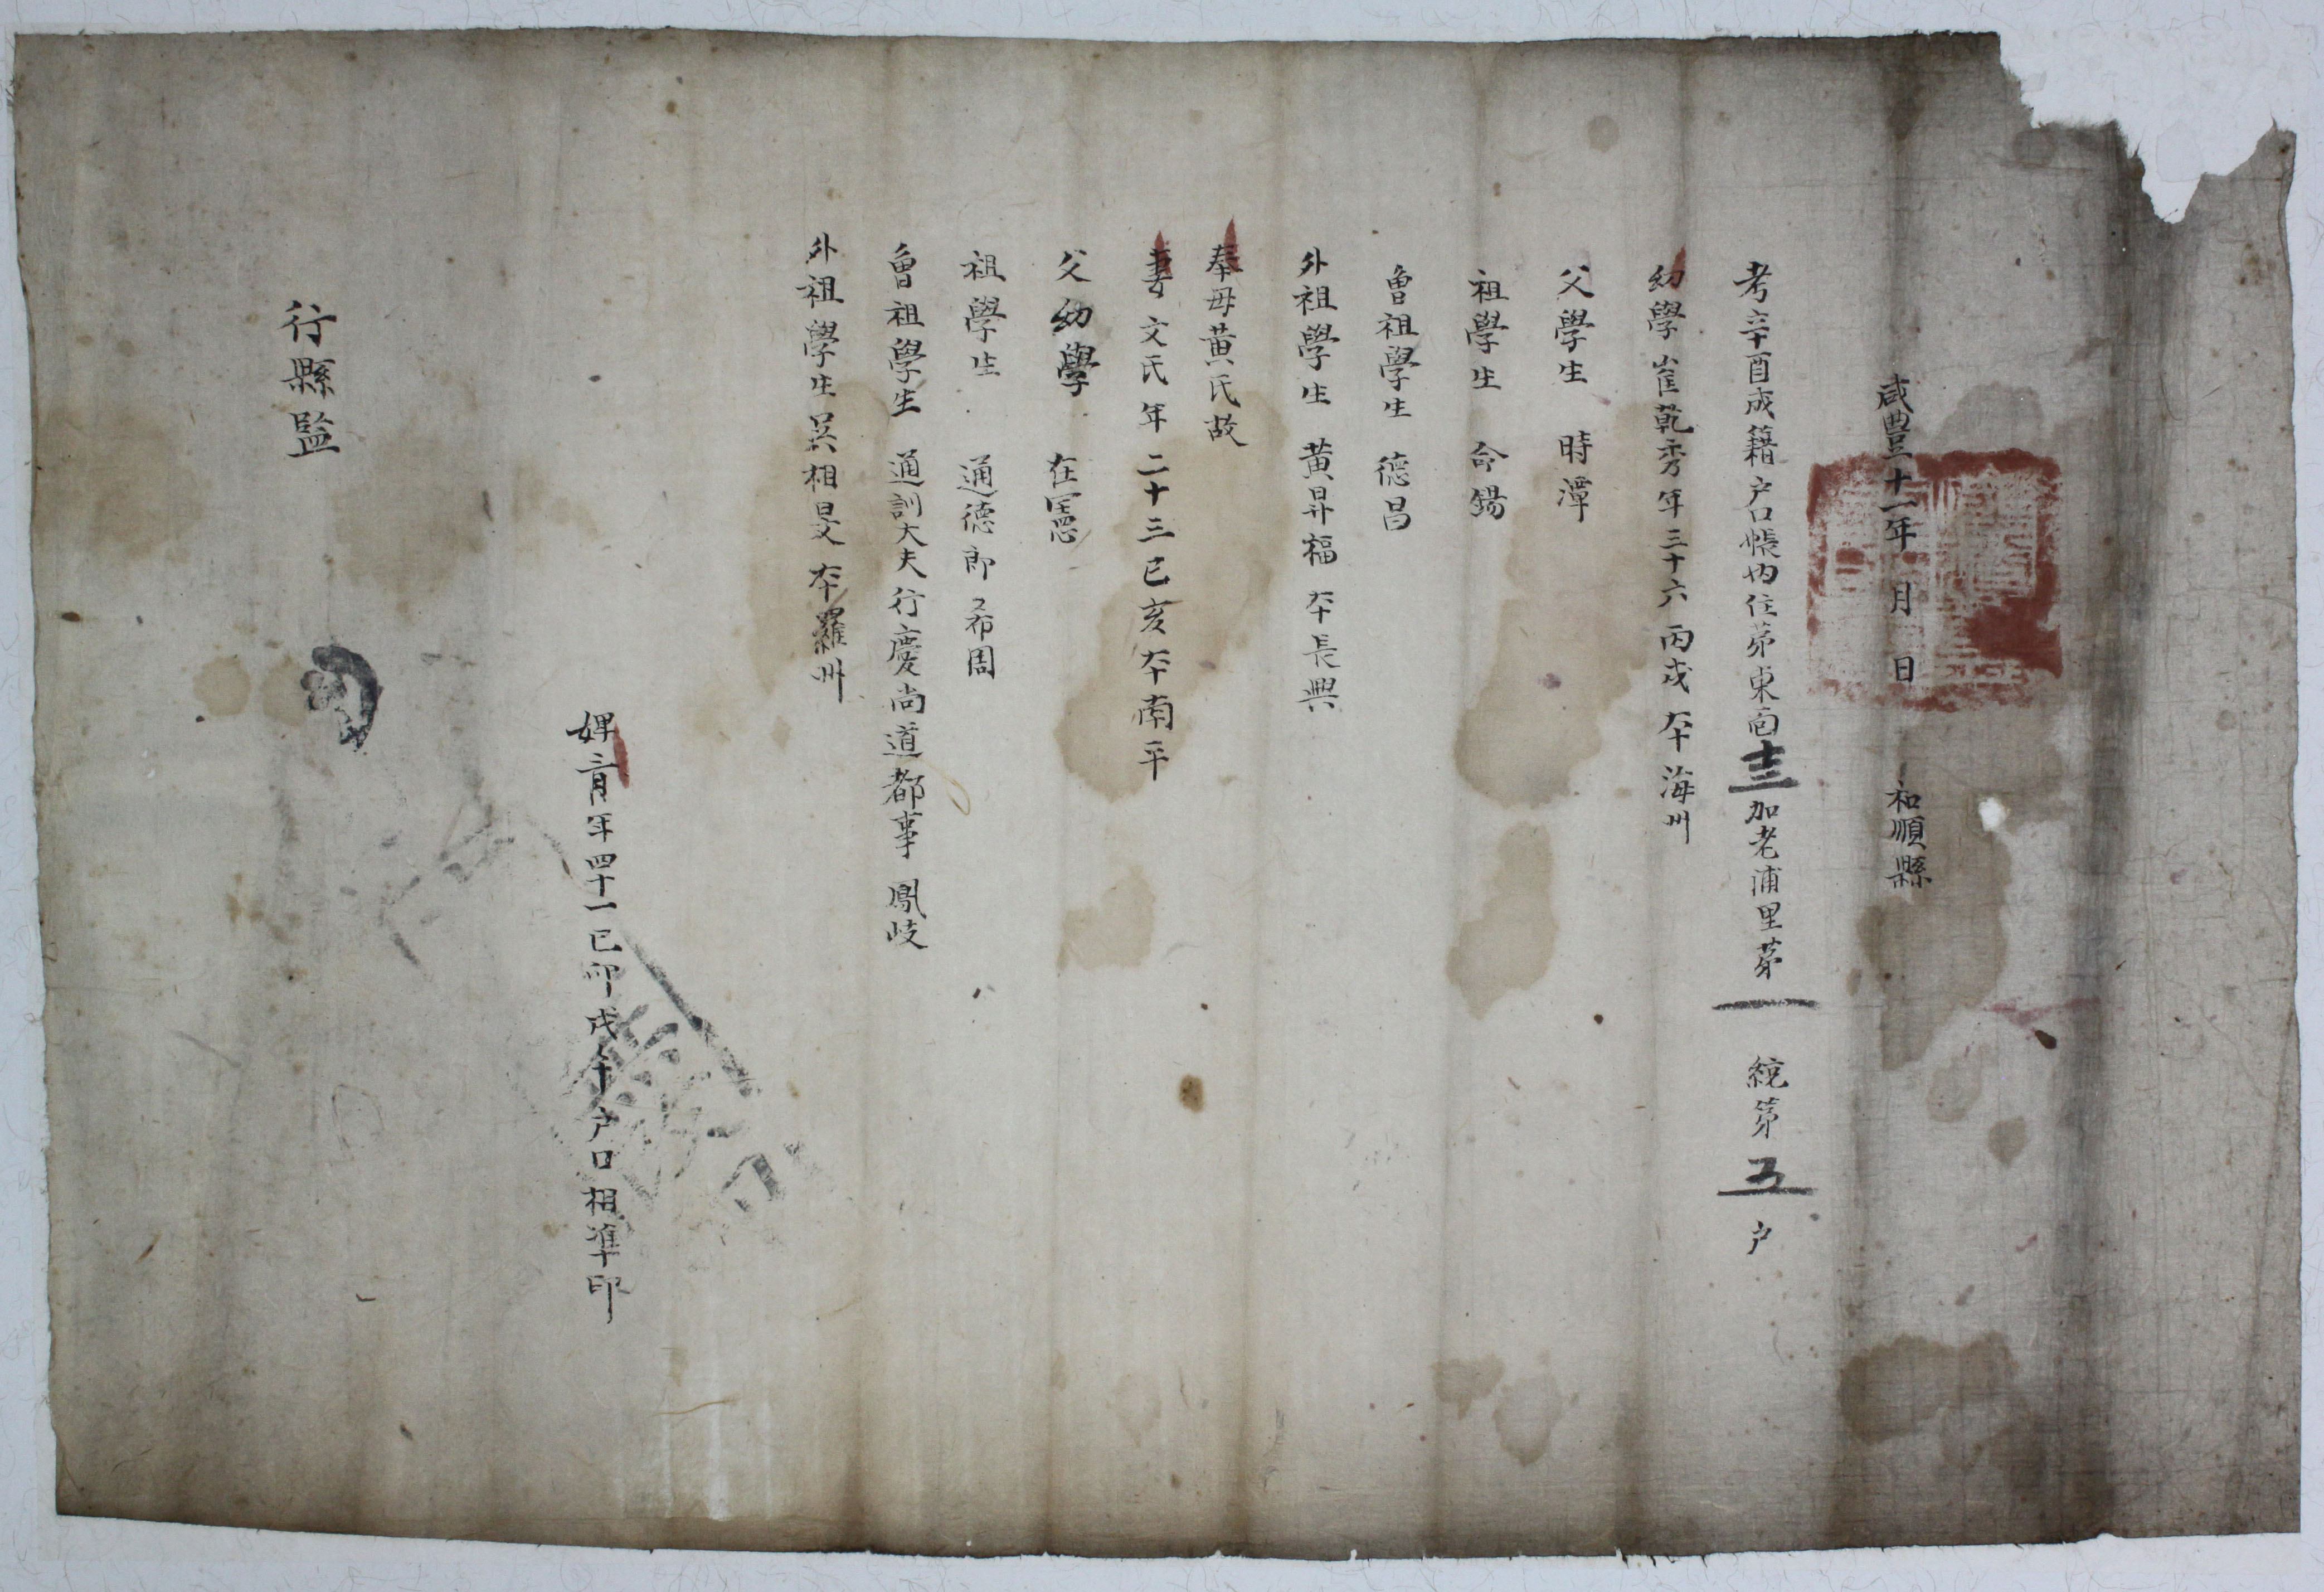 咸豊十一年 月 日 和順縣
考辛酉成籍户口帳內住第東面十三加老浦里第一統第五户
幼學崔乾秀年三十六丙戌本海州
父學生 時潭
祖學生 命錫
曾祖學生 德昌
外祖學生 黃昇福 本長興
奉母黃氏故
妻文氏年二十三己亥本南平
父幼學 在憲
祖學生 通德郎 希周
曾祖學生 通訓大夫行慶尚道都事 鳳岐
外祖學生吳相旻本羅州
婢 年四十一己卯戊午户口相準印
行縣監